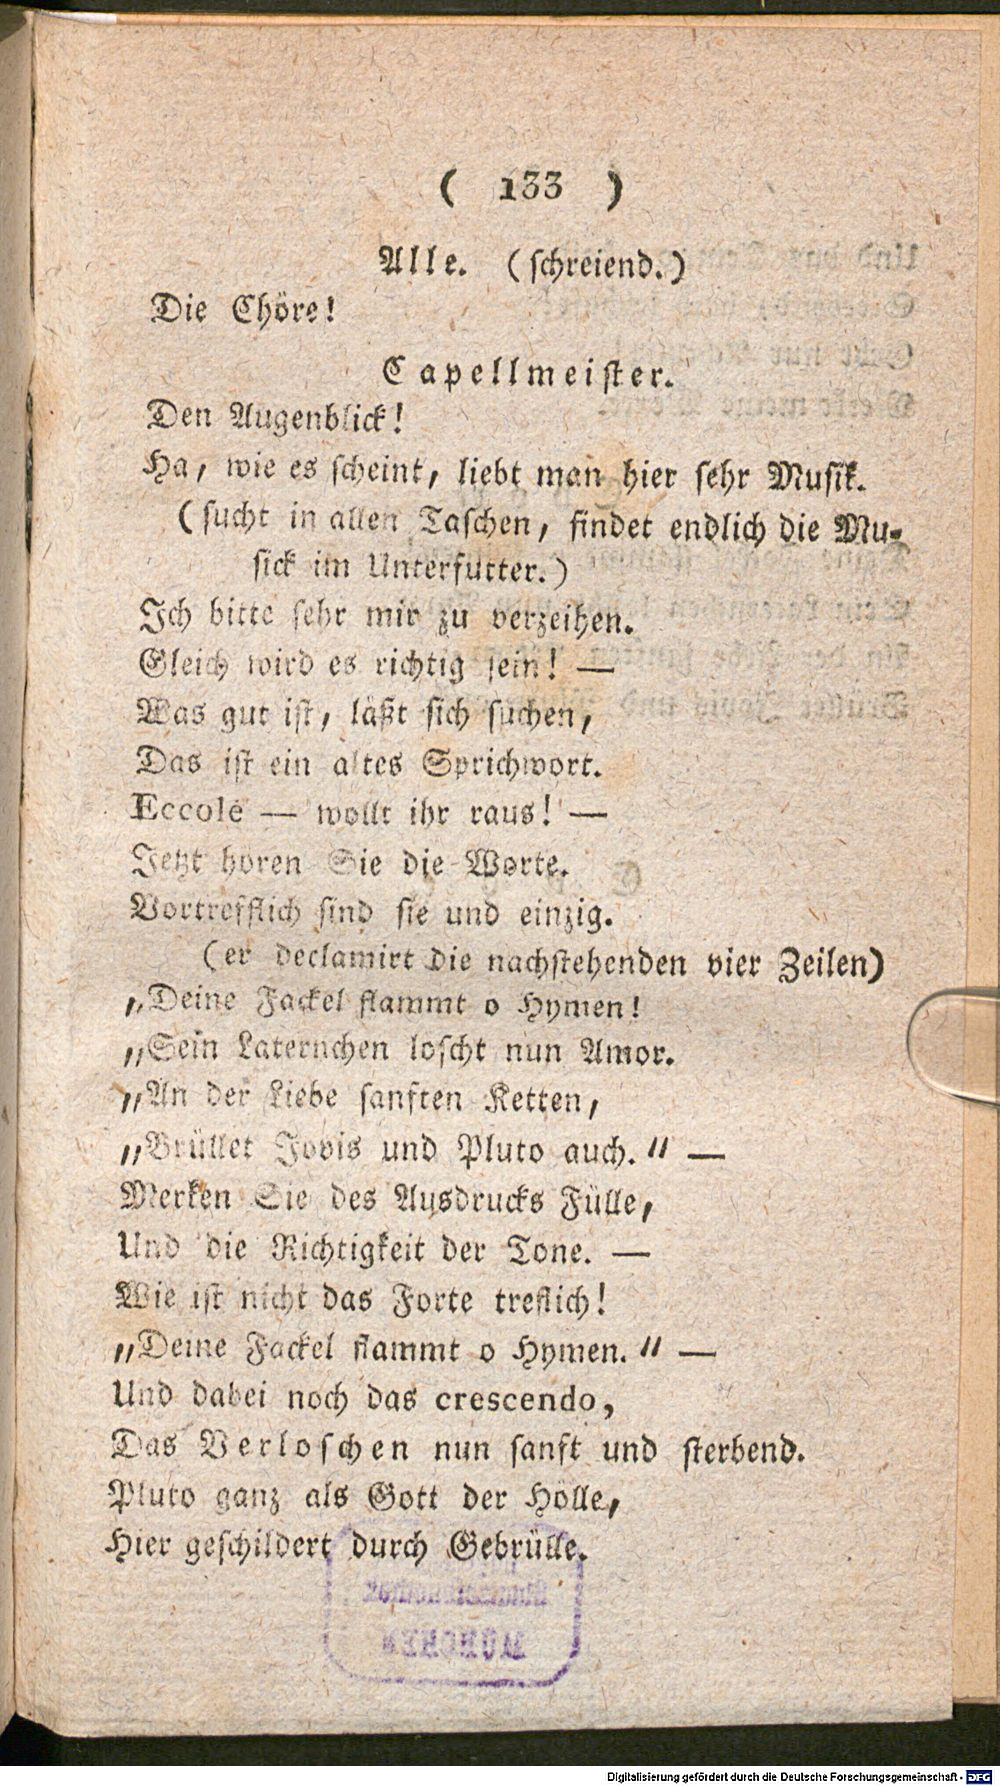 ( 133 )
Alle. (schreiend.)
Die Chöre!
Capellmeister.
Den Augenblick!
Ha, wie es scheint, liebt man hier sehr Musik.
(sucht in allen Taschen, findet endlich die Mu-
sick im Unterfutter.)
Ich bitte sehr mir zu verzeihen.
Gleich wird es richtig sein! —
Was gut ist, läßt sich suchen,
Das ist ein altes Sprichwort.
Eccole — wollt ihr raus! —
Jetzt horen Sie die Worte.
Vortrefflich sind sie und einzig.
(er declamirt die nachstehenden vier Zeilen)
„Deine Fackel flammt o Hymen!
„Sein Laternchen loscht nun Amor.
„An der Liebe sanften Ketten,
„Brüllet Jovis und Pluto auch.“ —
Merken Sie des Ausdrucks Fülle,
Und die Richtigkeit der Tone. —
Wie ist nicht das Forte treflich!
„Deine Fackel flammt o Hymen.“ —
Und dabei noch das crescendo,
Das Verloschen nun sanft und sterbend.
Pluto ganz als Gott der Hölle,
Hier geschildert durch Gebrülle.
MÜNCHEN
Digitalisierung gefördert durch die Deutsche Forschungsgemeinschaft - DFG